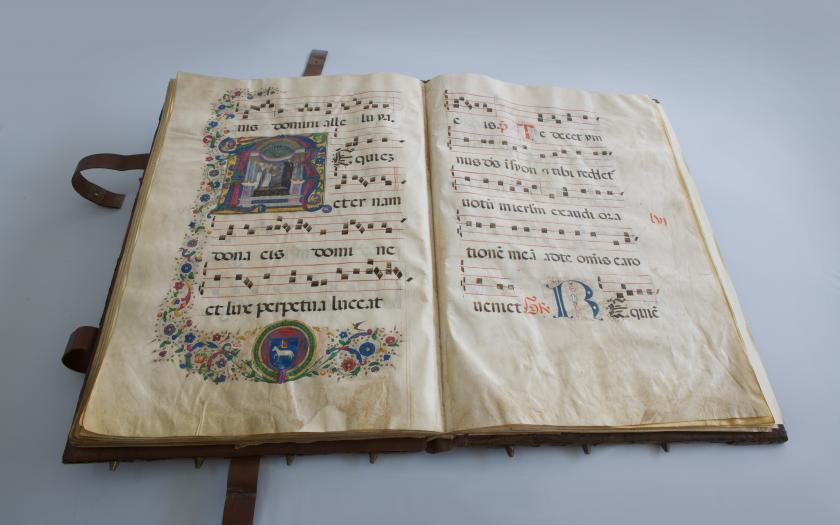 nis domini alle lu ya.
R equiez
eter nam
dona eis domi ne
et lux perpetua luceat
e is. Te decet ym
nus ds i syon & tibi reddet
votū in ierlm exaudi ora
lvi
tionē meā adte om̄is caro
veniet. R equiē